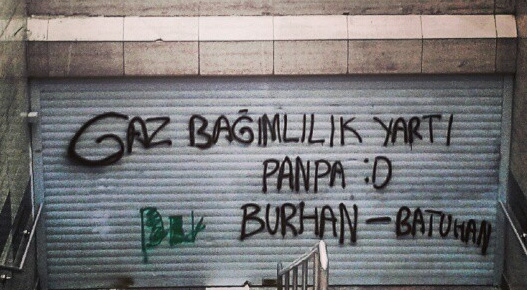 GAZ BAĞIMLILIK YARTI
PANPA :D
BURHAN - BATUHAN